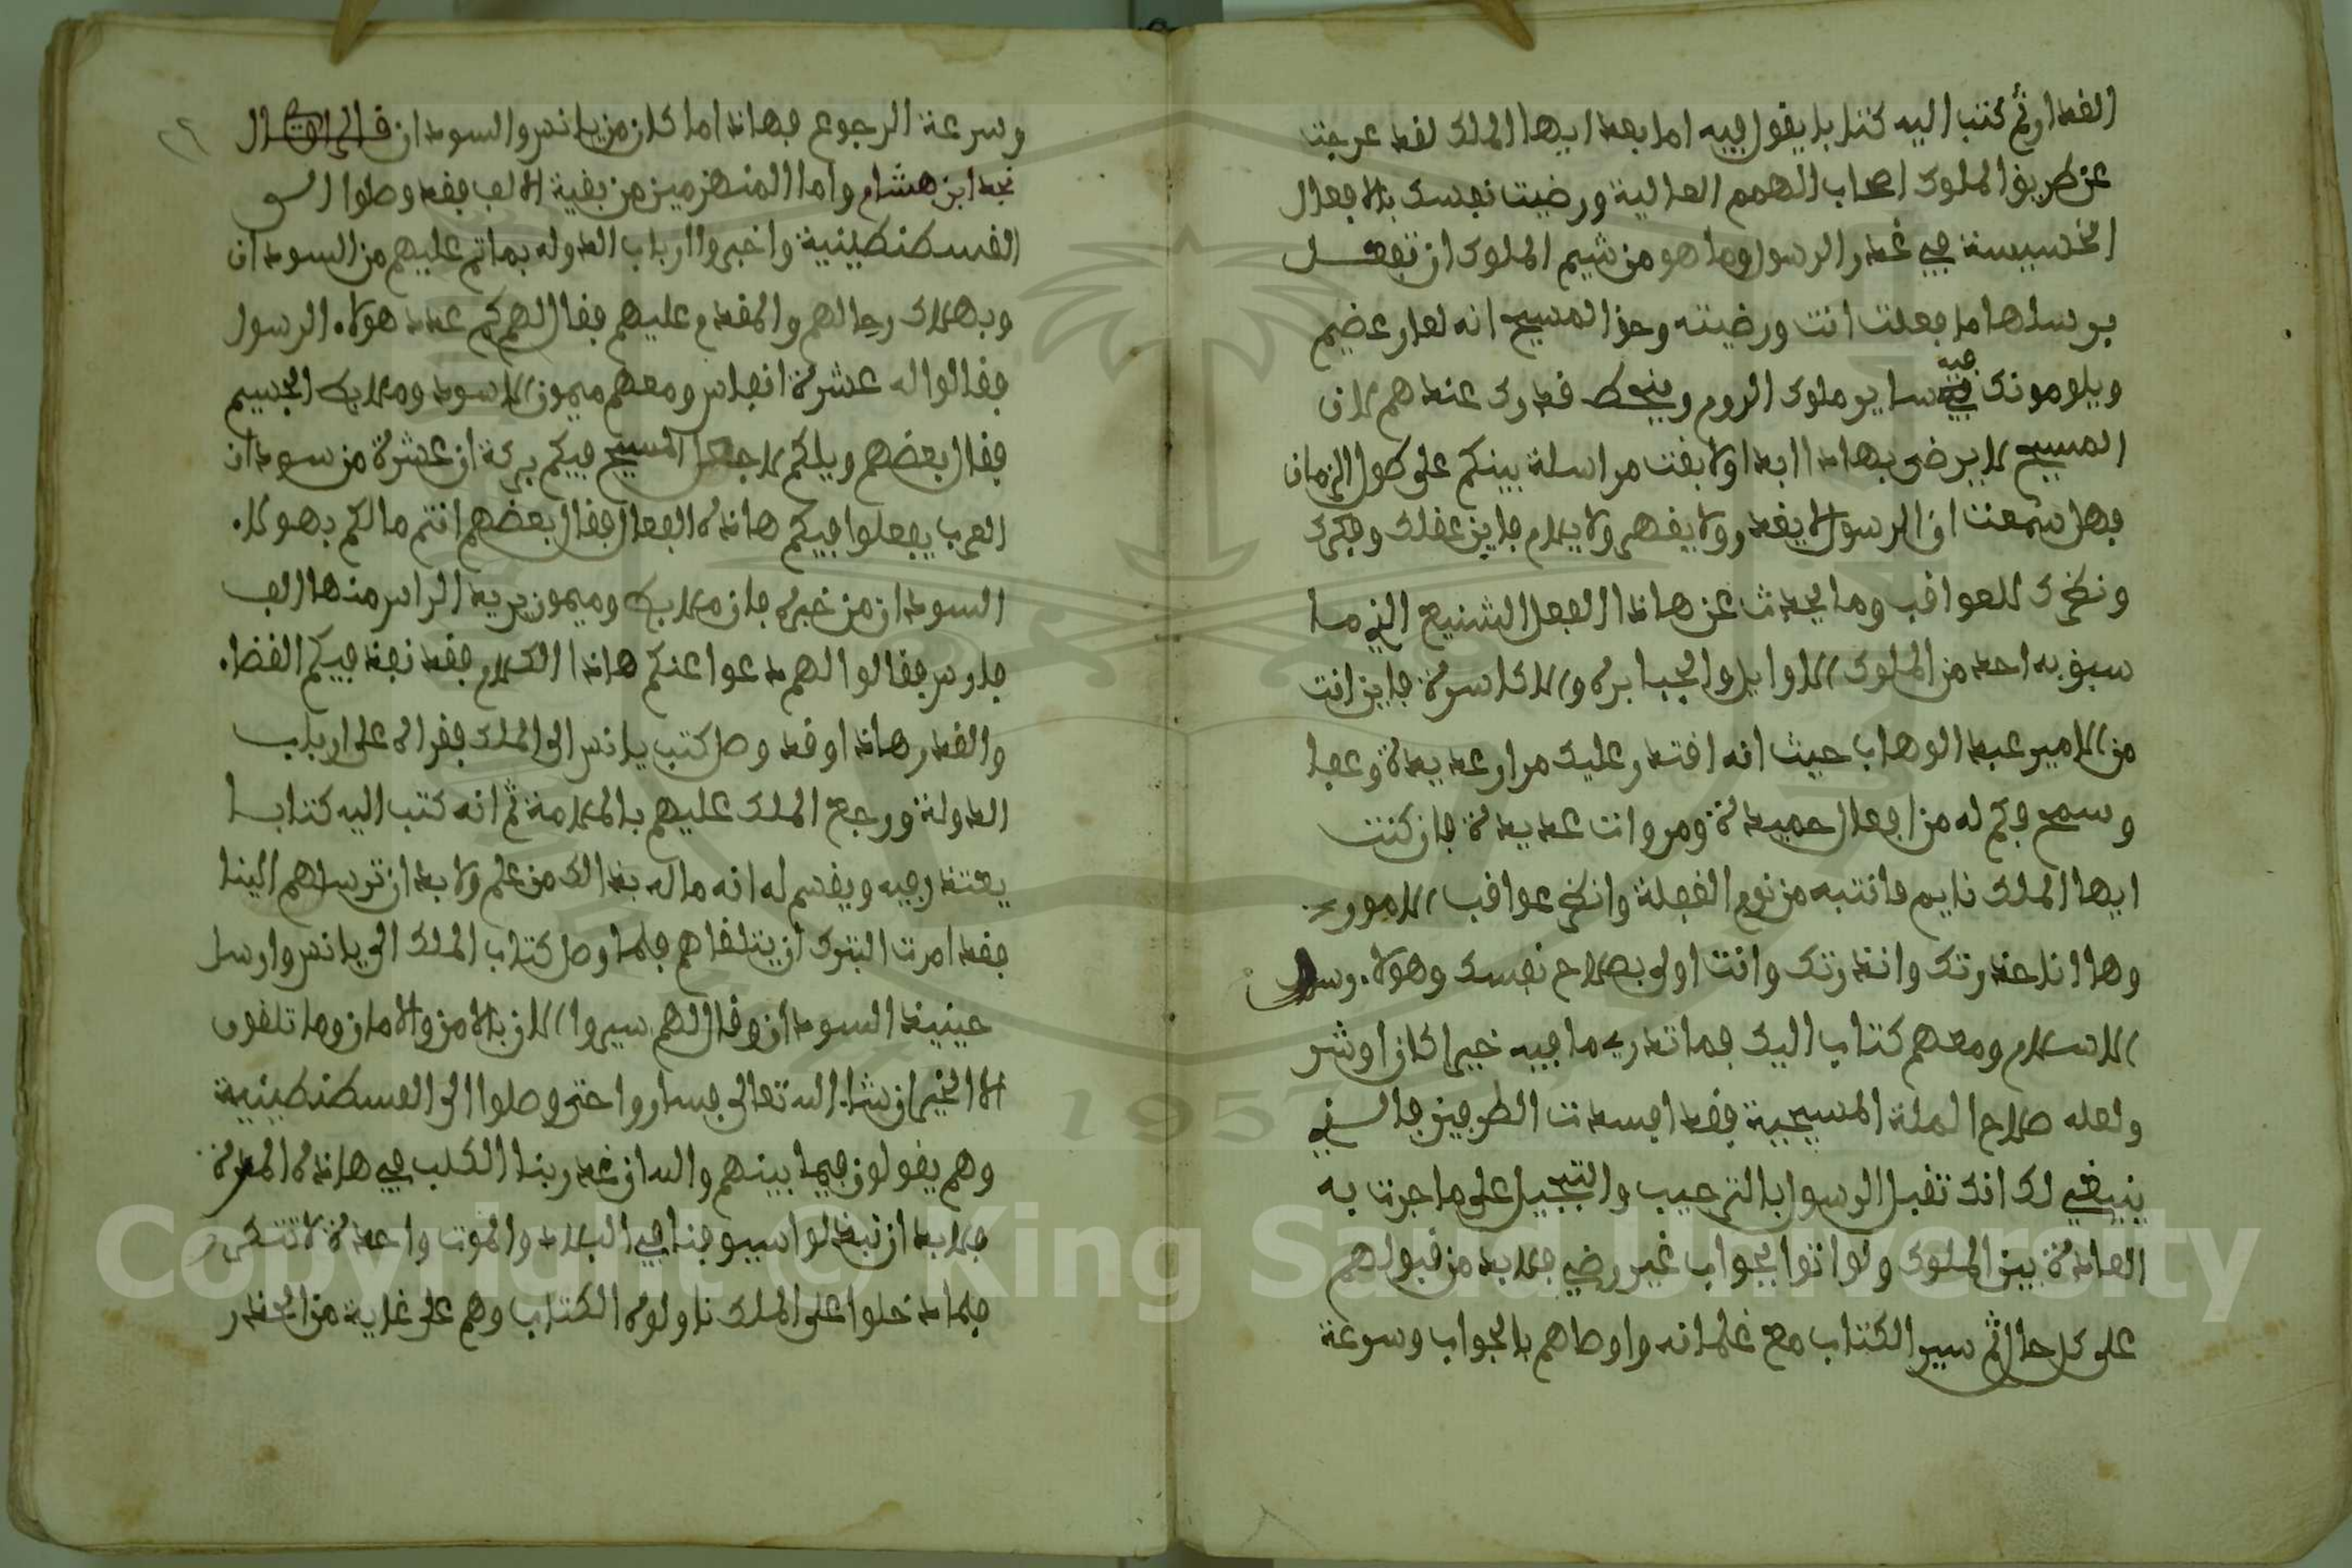 الغدار ثم كتب اليه كتابا يقول فيه اما بعد ايها الملك لقد عرجت
عن طريق الملوك اصحاب الهمم العالية ورضيت نفسك بالافعال
الخسيسة في غدر الرسول وما هو من شيم الملوك ان تفعل
برسلها ما فعلت انت ورضيته وحق المسيح انه لعار عضيم
ويلومونك فيه ساير ملوك الروم وينحط قدرك عندهم لان
المسيح لا يرضى بهاذا ابدا ولا بقت مراسلة بينكم على طول الزمان
فهل سمعت ان الرسول يغدر ولا يقهر ولا يلام فاين عقلك وفكرك
ونظرك للعواقب وما يحدث عن هاذا الفعل الشنيع الذي ما
سبق به احد من الملوك الاوايل والجبابرة والاكاسرة فاين انت
من الامير عبد الوهاب حيث انه اقتدر عليك مرار عديدة وعفا
وسمح وكم له من افعال حميدة ومروات عديدة فان كنت
ايها الملك نايم فانتبه من نوم الغفلة وانظر عواقب الامور
وها انا حذرتك وانذرتك وانت اولى بصلاح نفسك وهولاء رسل
الاسلام ومعهم كتاب اليك فما تدري ما فيه خيرا كان او شر
ولعله صلاح الملة المسيحية فقد افسدت الطرفين فالذي
ينبغي لك انك تقبل الرسول بالترحيب والتبجيل على ما جرت به
العادة بين الملوك ولو اتوا بجواب غير رضي فلا بد من قبولهم
على كل حال ثم سير الكتاب مع غلمانه واوصاهم بالجواب وسرعة
وسرعة الرجوع فهاذا ما كان من يانس والسودان قال
نجد ابن هشام واما المنهزمين من بقية الالف فقد وصلوا الى
القسطنطينية واخبروا ارباب الدوله بما تم عليهم من السودان
وبهلاك رجالهم والمقدم عليهم فقال لهم كم عدد هولاء الرسول
فقالوا له عشرة انفاس ومعهم ميمون الاسود وملايك الجسيم
فقال بعضهم ويلكم لا جعل المسيح فيكم بركة ان عشرة من سودان
العرب يفعلوا فيكم هاذه الفعال فقال بعضهم انتم مالكم بهولاء
السودان من خبرة فان ملايك وميمون يريد الراس منها الف
فارس فقالوا لهم دعوا عنكم هاذا الكلام فقد نفذ فيكم القضاء
والقدر هاذا وقد وصل كتب يانس الى الملك فقراه على ارباب
الدولة ورجع الملك عليهم بالملامة ثم انه كتب اليه كتابا
يعتذر فيه ويقسم له انه ما له بذالك من علم ولا بد ان ترسلهم الينا
فقد امرت البترك ان يتلقاهم فلما وصل كتاب الملك الى يانس وارسل
حينيذ السودان وقال لهم سيروا الان بالامن والامان وما تلقون
الا الخير ان شاء الله تعالى فساروا حتى وصلوا الى القسطنطينية
وهم يقولون فيما بينهم والله ان غدر بنا الكلب في هاذه المرة
فلا بد ان نبذلوا سيوفنا في البلاد والموت واحدة لا تتكرر
فلما دخلوا على الملك ناولوه الكتاب وهم على غاية من الحذر